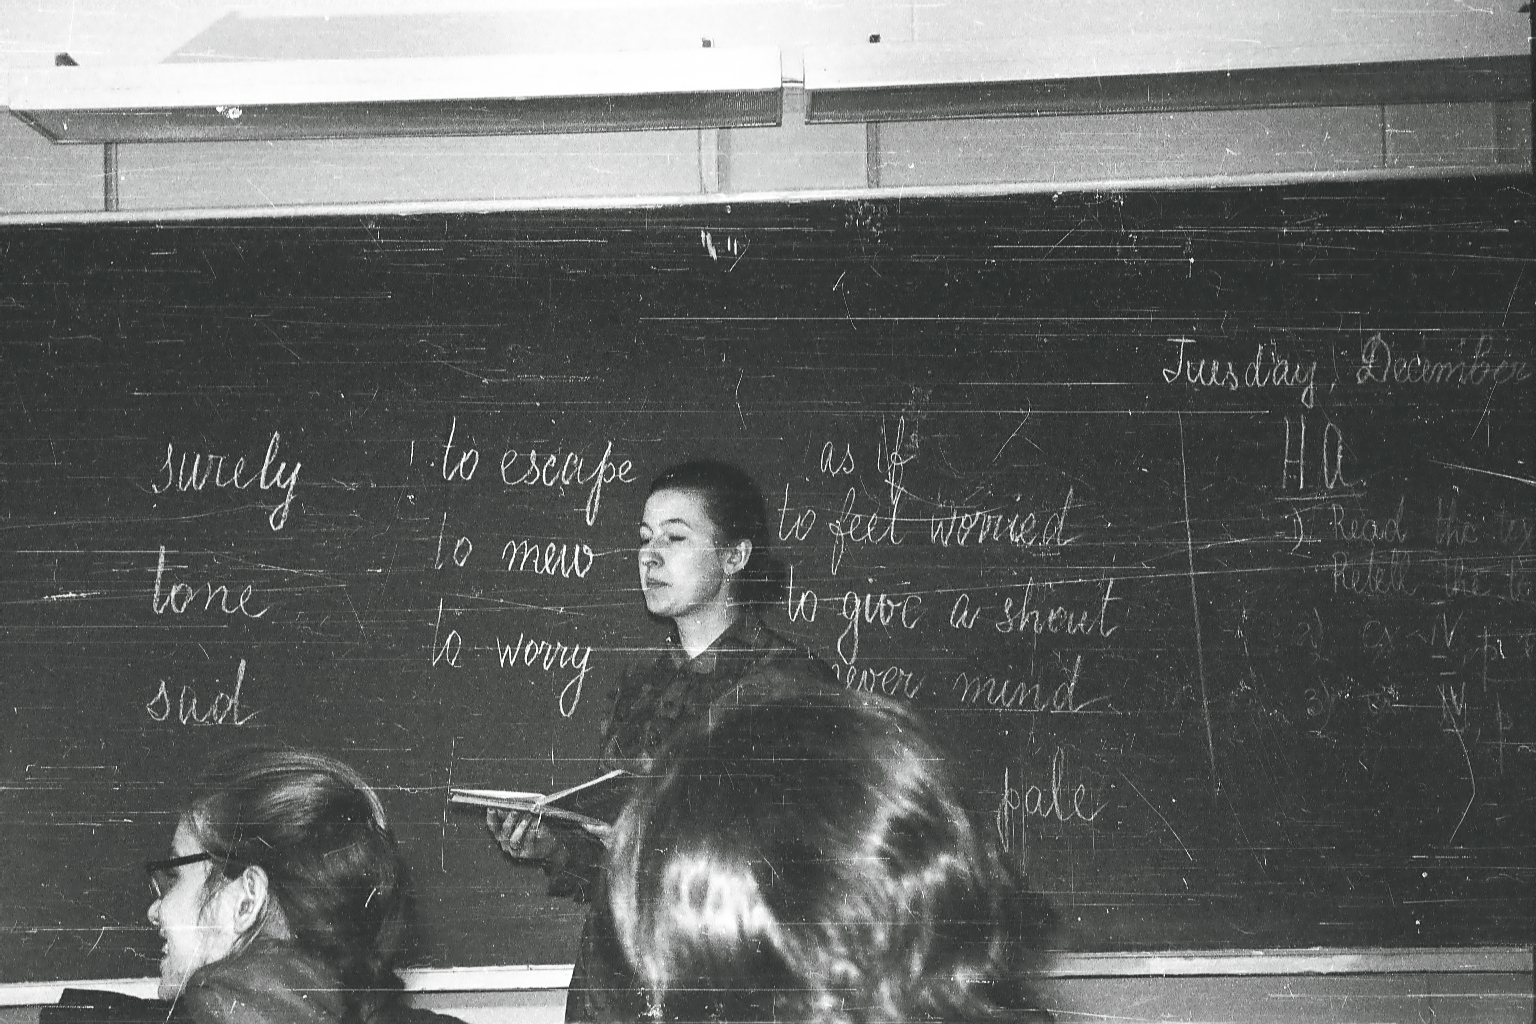 surely
tone
sad
to escape
to mew
to worry
as if
to feel worried
to give a shout
never mind
pale
Tuesday, December
HA.
1) Read the
Retell the
2) ex IV
3) IV